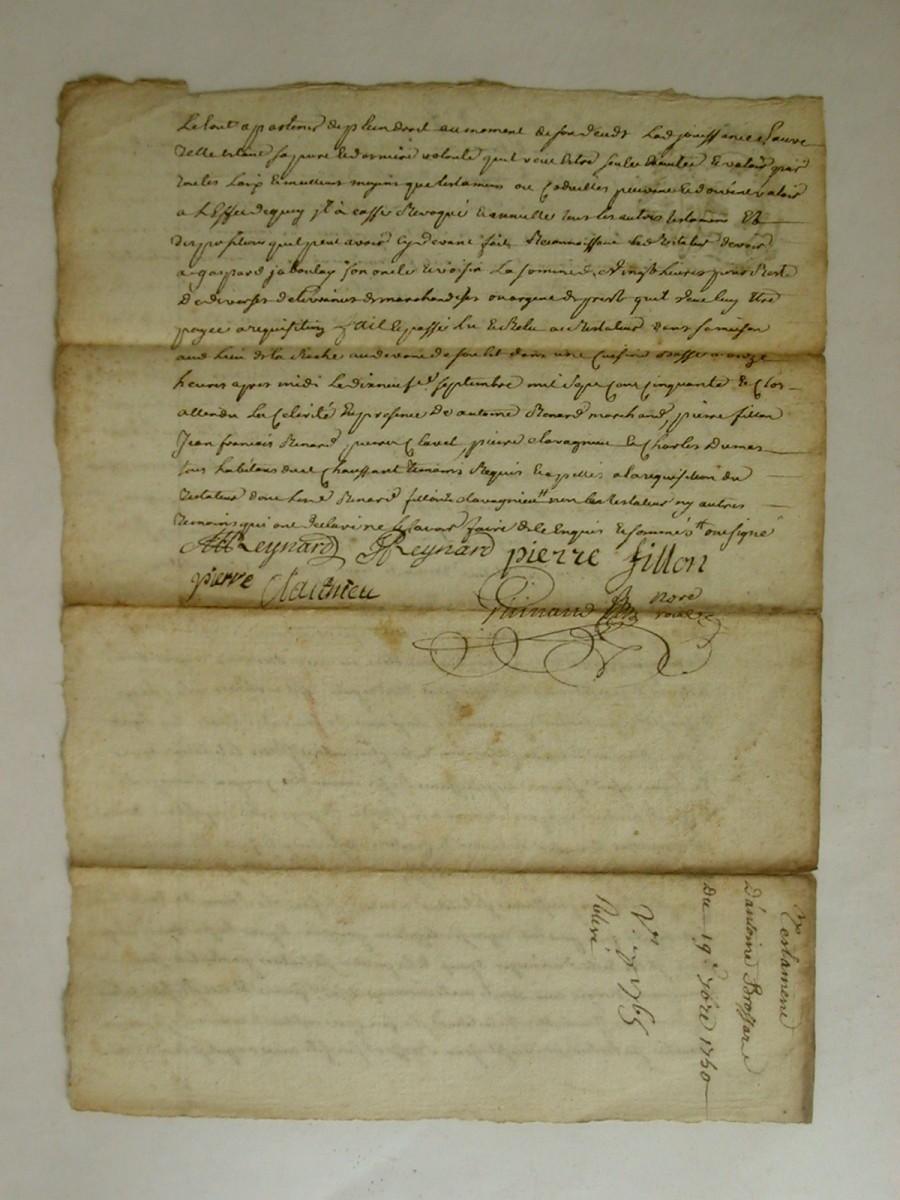 Le tout apartenir de plein droit au moment de son deceds Lad jouissance Sauve
Telle estant sa pure et derniere volonté quil veut estre seule executée et valoir par
toutes Loix et meilleurs moyens que testamens ou Codicilles peuvent et doivent valoir
a L'Effet dequoy il à cassé Revoqué et annullé tous les autres testamens Et
dispositions quil peut avoir cy devant fait, Reconnoissant led testateur devoir
a gaspard jaboulay son oncle et voisin La somme de Vingt livres pour Reste
De diverses delivrances de marchandises ou argent de prest quil veut luy Etre
payée a requisition, fait et passé Lu et Relu au testateur dans sa maison
aud Lieu de la Roche au devant de son lit dans une Cuisine basse a onze
heures apres midi Le dixneufe septembre mil sept Cent Cinquante et Clos
attendu La Celerité En presence De antoine Renard marchand, pierre fillon
Jean francois Renard, pierre Clavel, pierre clavagnieu et Charles Dumas
tous habitans dud Chaussant temoins Requis et apellés a la requisition du
testateur dont Lesd Renard fillon et clavagnieu ont
temoins qui ont declaré ne Scavoir faire de ce Enquis et sommés ont signé
Reynard JfReynard pierre fillon
pierre
Guinand nore
roual
Testament
D'antoine Brossard
Du 19e 7bre 1750
1765